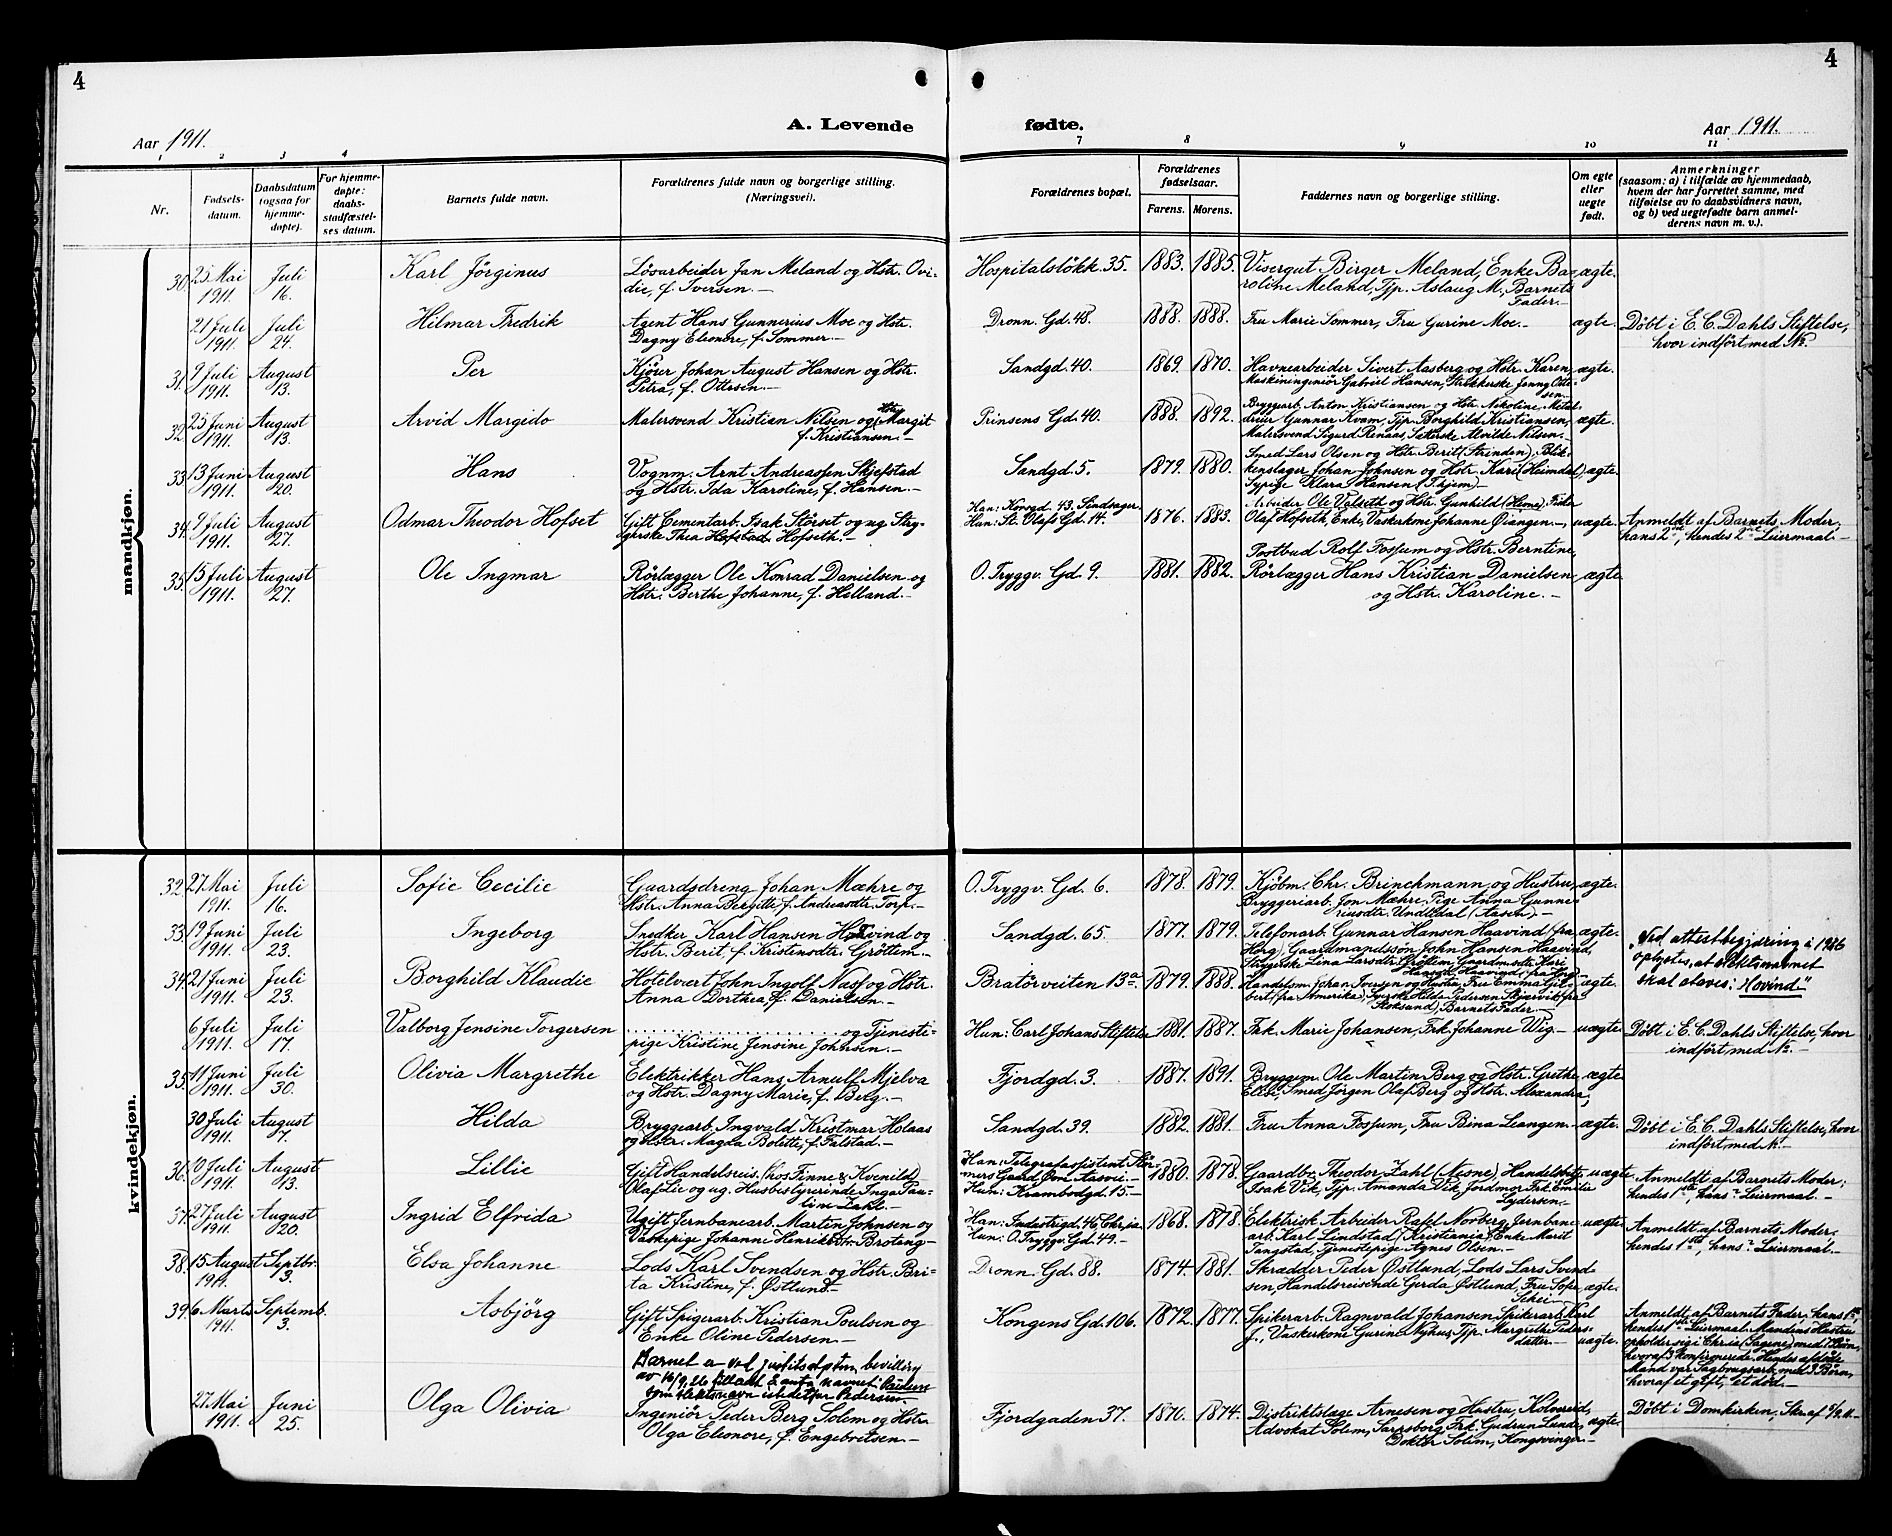 4
4
A. Levende fødte.
Aar 1911.
Aar 1911.
1 2 3 4 7 8 9 10 11
Nr.
Fødsels-
datum.
Daabsdatum
(ogsaa for
hjemme-
døpte).
For hjemme-
døpte:
daabs-
stadfæstel-
ses datum.
Barnets fulde navn.
Forældrenes fulde navn og borgerlige stilling.
(Næringsvei).
Forældrenes bopæl.
Forældrenes
fødselsaar.
Farens. Morens.
Faddernes navn og borgerlige stilling.
Om egte
eller
uegte
født.
Anmerkninger
(saasom: a) i tilfælde av hjemmedaab,
hvem der har forrettet samme, med
tilføielse av to daabsvidners navn,
og b) ved uegtefødte barn anmel-
derens navn m. v.).
mandkjøn.
30. 25 Mai 1911. Juli 16.
Karl Jörginus
Løsarbeider Jan Meland og Hstr. Ovi-
die, f. Iversen.—
Hospitalsløkk. 35. 1883. 1885.
Visergut Birger Meland, Enke Ba-
roline Meland, Tjp. Aslaug M., Barnets
Fader.—
ægte.
21 Juli 1911. Juli 24.
Hilmar Fredrik
Agent Hans Gunnerius Moe og Hstr.
Dagny Eleonore, f. Sommer.—
Dronn. Gd. 48. 1888. 1888.
Fru Marie Sommer, Fru Gurine Moe.—
ægte.
Døbt i E. C. Dahls Stiftelse,
hvor indført med No.
31. 9 Juli 1911. August 13.
Per
Kjører Johan August Hansen og Hstr.
Petra, f. Ottesen.—
Sandgd. 40. 1869. 1870.
Havnearbeider Sivert Aasberg og Hstr. Karen,
Maskiningeniör Gabriel Hansen, Strikkerske Jenny Otte-
sen.
ægte.
32. 25 Juni 1911. August 13.
Arvid Margido
Malersvend Kristian Nilsen og Hstr. Margit
f. Kristiansen.—
Prinsens Gd. 40. 1888. 1892.
Bryggearb. Anton Kristiansen og Hstr. Nekoline, Metal-
dreier Gunnar Kvam, Tjp. Borghild Kristiansen,
Malersvend Sigurd Renaas, Sækerske Alvilde Nilsen.—
ægte.
33. 13 Juni 1911. August 20.
Hans
Vognm. Arnt Andreassen Skjefstad
og Hstr. Ida Karoline, f. Hansen.—
Sandgd. 5. 1879. 1880.
Smed Lars Olsen og Hstr. Berit (Strinden), Blik-
kenslager Johan Johnsen og Hstr. Kari (Heimdal),
Sypige Klara Hansen (Thjem).—
ægte.
34. 9 Juli 1911. August 27.
Odmar Theodor Hofset
Gift Cementarb. Isak Störset og ug. Stry-
gerske Thea Hofstad Hofseth.—
Han: Kovgd. 43, Sindsager.
Hun: St. Olafs Gd. 14. 1876. 1883.
Arbeider Ole Valseth og Hstr. Gunhild (Hevne), Frida
Olaf Hofseth, Enke, Vaskerkone Johanne Øiangen.—
uægte.
Anmeldt af Barnets Moder;
hans 2det, hendes 2det Leiermaal.—
35. 15 Juli 1911. August 27.
Ole Ingmar
Rörlægger Ole Konrad Danielsen og
Hstr. Berthe Johanne, f. Helland.—
O. Tryggv. Gd. 9. 1881. 1882.
Postbud Rolf Fossum og Hstr. Berntine,
Rörlægger Hans Kristian Danielsen
og Hstr. Karoline.—
ægte.
kvindekjøn.
32. 27 Mai 1911. Juli 16.
Sofie Cecilie
Gaardsdreng Johan Mæhre og
Hstr. Anna Bergitte, f. Andreasdtr. Torp.—
O. Tryggv. Gd. 6. 1878. 1879.
Kjöbm. Chr. Brinchmann og Hustru,
Bryggeriarb. Jon Mæhre, Pige Anna Gunne-
riusdtr. Undlidal (Aasen).—
ægte.
33. 19 Juni 1911. Juli 23.
Ingeborg
Snedker Karl Hansen Hovind og
Hstr. Berit, f. Kristensdtr. Gröttem.—
Sandgd. 65. 1877. 1879.
Telefonarb. Gunnar Hansen Haavind (fra
Horg), Gaardmandssøn John Hansen Haavind,
Strygerske Lina Larsdtr. Gröttem, Gaardmdtr. Kari
Hansdtr. Haavind, fra Horg.—
ægte.
„Ved attestbegjæring i 1926
oplystes, at slektsnavnet
skal staves: Hovind“
34. 21 Juni 1911. Juli 23.
Borghild Klaudie
Hotelvert John Ingolf Næss og Hstr.
Anna Dorthea, f. Danielsen.—
Bratörveiten 13a 1879. 1888.
Handelsm. Johan Iversen og Hustru, Fru Emma Gil-
bert (fra Amerika), Syerske Hilda Pedersen Skjærvik (fra
Stoksund), Barnets Fader.—
ægte.
6 Juli 1911. Juli 17.
Valborg Jensine Torgersen
. . . . . . . . . . . . og Tjeneste-
pige Kristine Jensine Johnsen.—
Hun: Carl Johans Stiftelse 1881. 1887.
Frk. Marie Johansen, Frk. Johanne Wig.—
uægte.
Døbt i E. C. Dahls Stiftelse, hvor
indført med No.—
35. 11 Juni 1911. Juli 30.
Olivia Margrethe
Elektrikker Hans Arnulf Mjelva
og Hstr. Dagny Marie, f. Berg.—
Fjordgd. 3. 1887. 1891.
Bryggem. Ole Martin Berg og Hstr. Grethe
Elise, Smed Jörgen Olaf Berg og Hstr. Alexandra,
ægte.
30 Juli 1911. August 7.
Hilda
Bryggearb. Ingvald Kristmar Holaas
og Hstr. Magda Bolette, f. Falstad.—
Sandgd. 39. 1882. 1881.
Fru Anna Fossum, Fru Bina Leangen.—
ægte.
Døbt i E. C. Dahls Stiftelse, hvor
indført med No
36. 10 Juli 1911. August 13.
Lillie
Gift Handelsreis. (hos Finne & Kvenild)
Olaf Lie og ug. Husbestyrerinde Inga Pau-
line Zahl.—
Han: Telegrafassistent Stör-
mers Gaard, Øvn. Aasvei.—
Hun: Krambodgd. 15.— 1880. 1878.
Gaardbr. Theodor Zahl (Nesne), Handelsbetj.
Isak Vik, Tjp. Amanda Vik, Jordmor Frk. Emilie
Lydersen.—
uægte.
Anmeldt af Barnets Moder;
hendes 1ste, hans ? Leiermaal.—
37. 27 Juli 1911. August 20.
Ingrid Elfrida
Ugift Jernbanearb. Martin Johnsen og
Vaskepige Johanne Henriksdtr. Broteng.—
Han: Industrigd. 46, Chr.ia.
Hun: O. Tryggv. Gd. 49.— 1868. 1878.
Elektrisk Arbeider Rafel Norberg, Jernbane-
arb. Karl Lindstad (Kristiania), Enke Marit
Tangstad, Tjenestepige Agnes Olsen.—
uægte.
Anmeldt af Barnets Moder.
hendes 1ste, hans ? Leiermaal.—
38. 15 August 1911. Septbr. 3.
Elsa Johanne
Lods Karl Svendsen og Hstr. Bri-
ta Kristine, f. Østlund.
Dronn. Gd. 88. 1874. 1881.
Skrædder Peder Østlund, Lods Lars Svend-
sen, Handelsreisende Gerda Østlund, Fru Sofie

ægte.
39. 6 Marts 1911. Septemb. 3.
Asbjörg
Gift Spigerarb. Kristian Poulsen og
Enke Oline Pedersen.—
Barnet er ved justitsdeptm. bevilling
av 16/9. 26 tillatt å anta navnet Paulsen
som slektsnavn istedetfor Pedersen.
Kongens Gd. 106. 1872. 1877.
Spikerarb. Ragnvald Johansen, Spikerarb. Karl
J., Vaskerkone Gurine Myhus, Tjp. Margrethe Peders-
datter.—
uægte.
Anmeldt af Barnets Fader, hans 1ste
hendes 1ste Leiermaal. Mandens Hustru
opholder sig i Chr.ia (Sagene) med 7 Børn,
hvoraf 3 konfirmerede. Hendes afdøde
Mand var Sagbrugsarb. med 3 Børn,
hvoraf et gift, et död.—
27 Mai 1911. Juni 25.
Olga Olivia
Ingeniör Peder Berg Solem og Hstr.
Olga Eleonore, f. Engebretsen.—
Fjordgaden 37. 1870. 1874.
Distriktslæge Arnesen og Hustru, Kolvereid,
Advokat Solem, Sarpsborg, Frk. Gudrun Lund,
Doktor Solem, Kongsvinger.—
ægte.
Døbt i Domkirken,